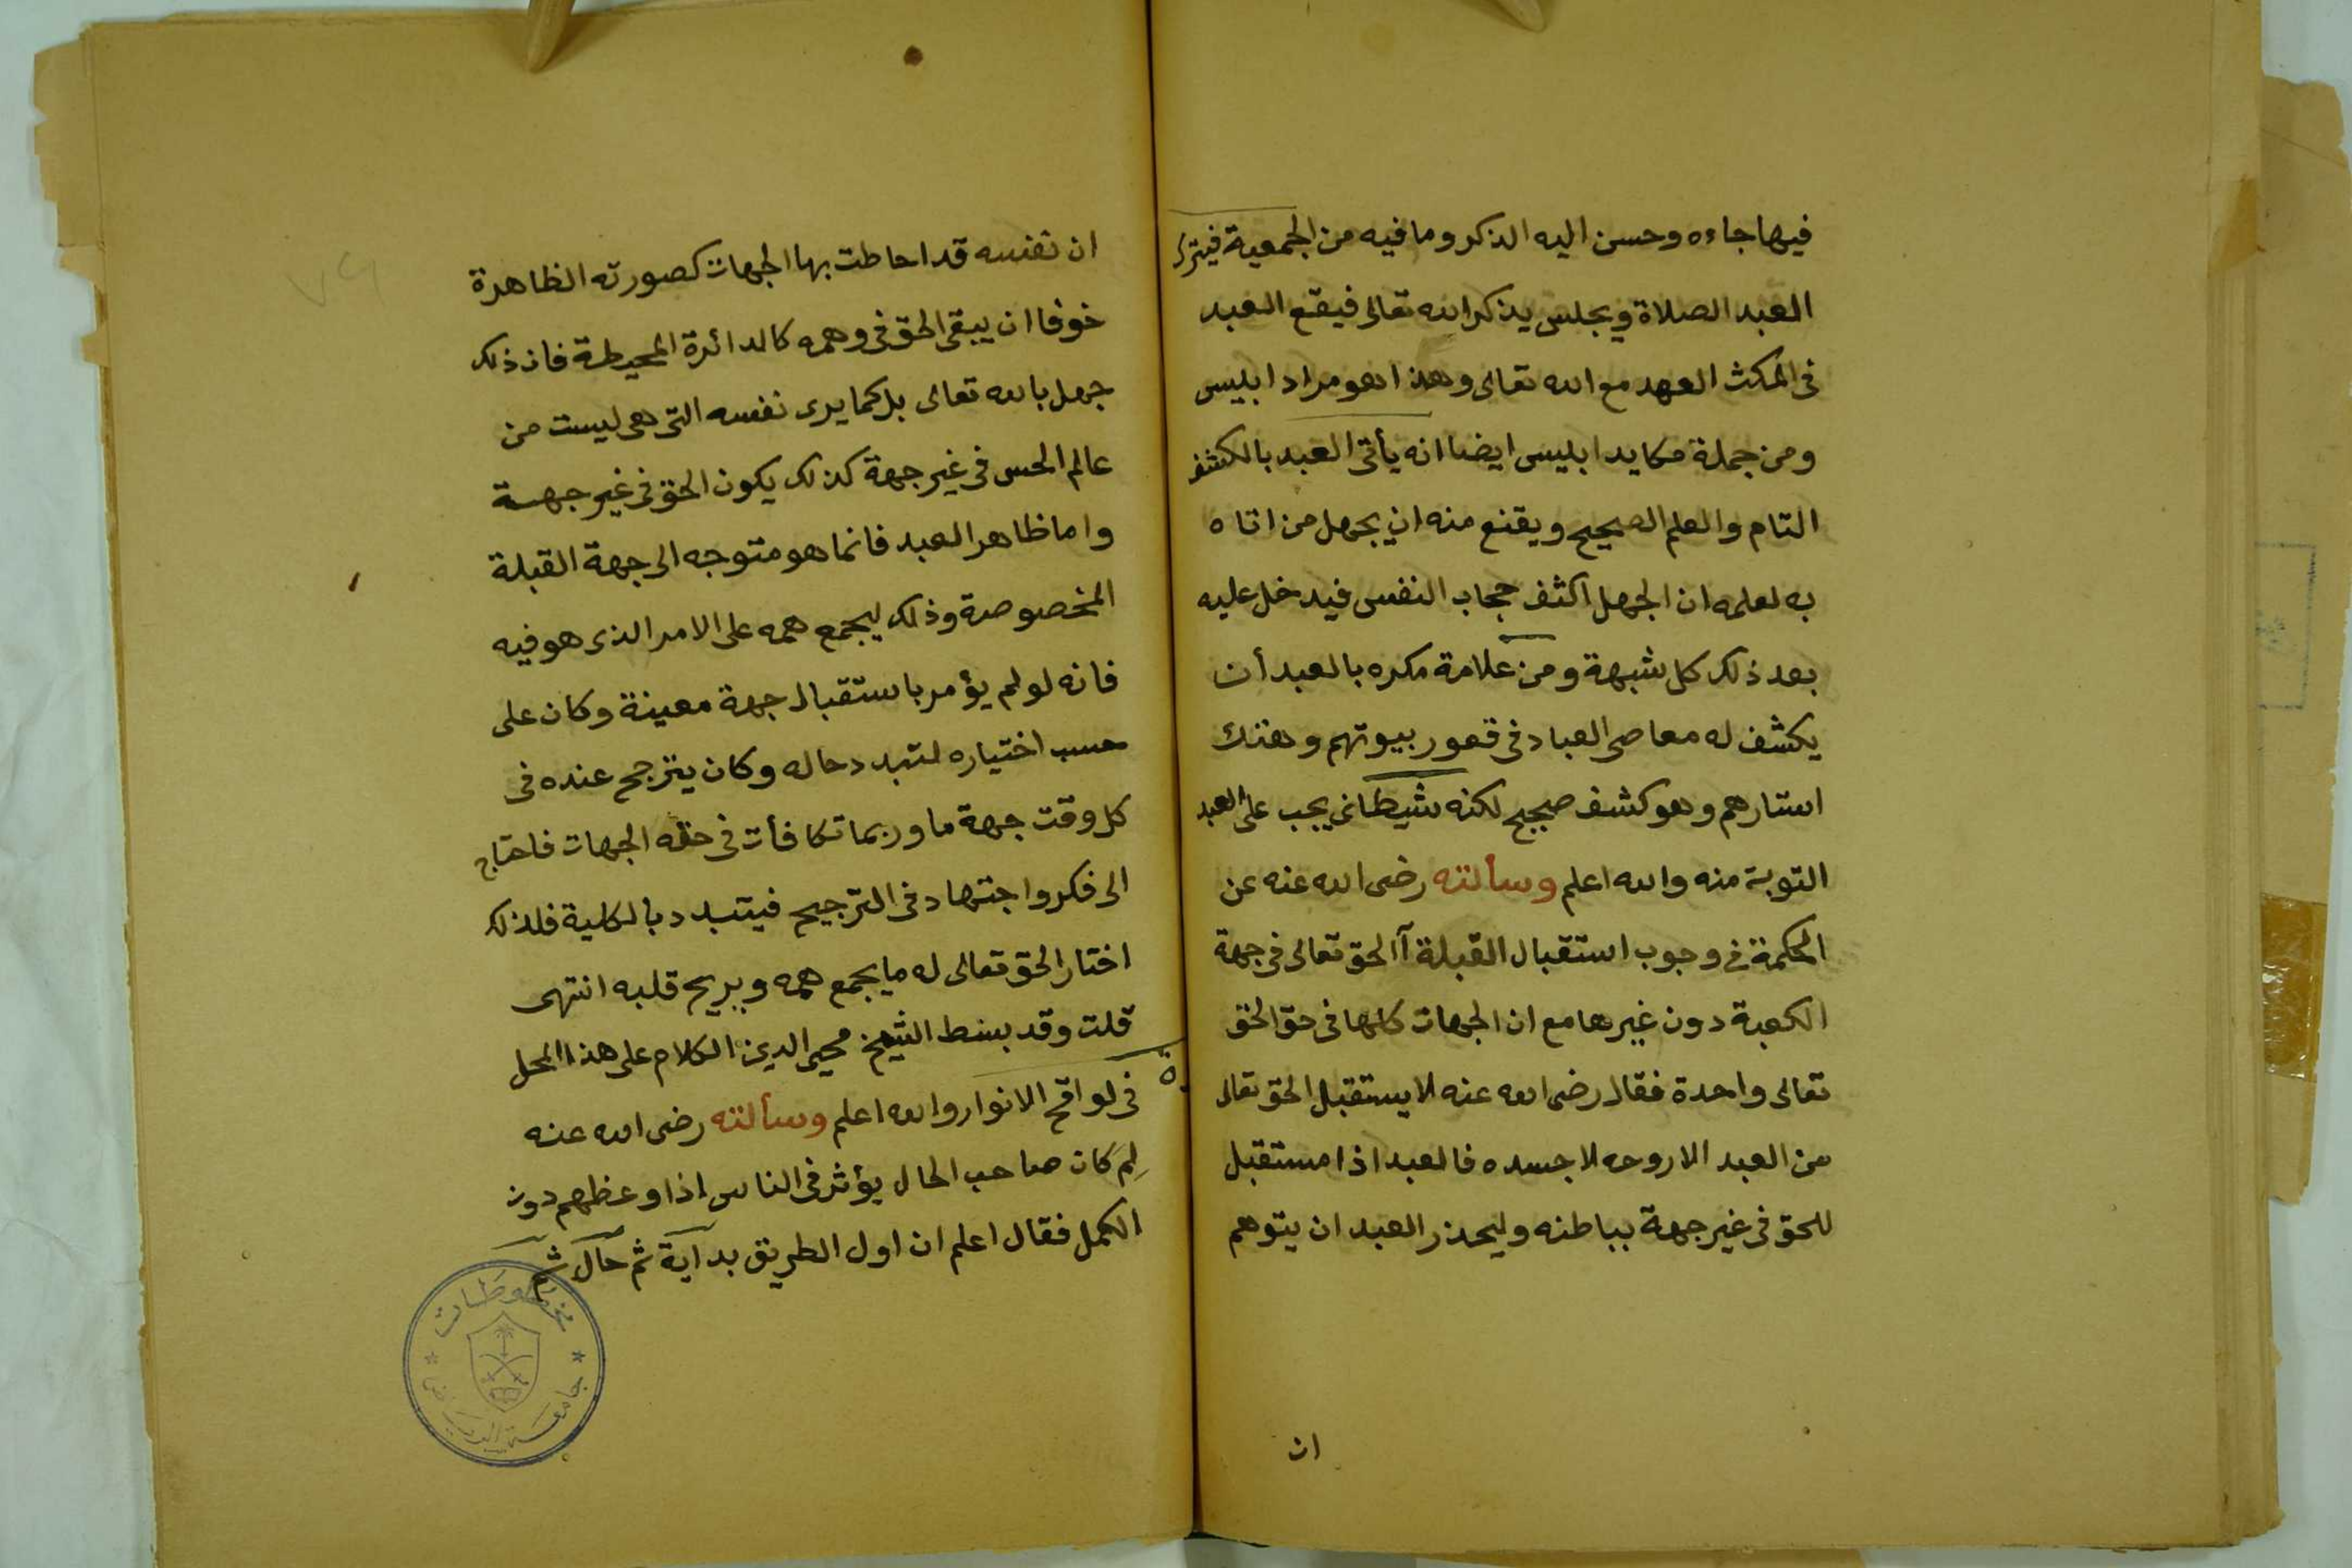 فيها جاءه وحسن اليه الذكر وما فيه من الجمعية فيترك
العبد الصلاة ويجلس يذكر الله تعالى فيقع العبد
في المكث العهد مع الله تعالى وهذا هو مراد ابليس
ومن جملة مكايد ابليس ايضا انه يأتى العبد بالكشف
التام والعلم الصحيح ويقنع منه ان يجهل من اتاه
به لعلمه ان الجهل اكثف حجاب النفس فيدخل عليه
بعد ذلك كل شبهة ومن علامة مكره بالعبد أن
يكشف له معاصى العباد فى قعور بيوتهم وهتك
استارهم وهو كشف صحيح لكنه شيطانى يجب على العبد
التوبة منه والله اعلم وسألته رضى الله عنه عن
الحكمة فى وجوب استقبال القبلة آالحق تعالى فى جهة
الكعبة دون غيرها مع ان الجهات كلها فى حق الحق
تعالى واحدة فقال رضى الله عنه لا يستقبل الحق تعالى
من العبد الا روحه لا جسده فالعبد اذا مستقبل
للحق فى غير جهة بباطنه وليحذر العبد ان يتوهم
ان
ان نفسه قد احاطت بها الجهات كصورته الظاهرة
خوفا ان يبقى الحق فى وهمه كالدائرة المحيطة فان ذلك
جهل بالله تعالى بل كما يرى نفسه التى هى ليست من
عالم الحس فى غير جهة كذلك يكون الحق فى غير جهة
واما ظاهر العبد فانما هو متوجه الى جهة القبلة
المخصوصة وذلك ليجمع همه على الامر الذى هو فيه
فانه لو لم يؤمر باستقبال جهة معينة وكان على
حسب اختياره لتبدد حاله وكان يترجح عنده فى
كل وقت جهة ما وربما تكافأت فى حقه الجهات فاحتاج
الى فكر واجتهاد فى الترجيح فيتبدد بالكلية فلذلك
اختار الحق تعالى له ما يجمع همه ويريح قلبه انتهى
قلت وقد بسط الشيخ محيى الدين الكلام على هذا المحل
فى لواقح الانوار والله اعلم وسألته رضى الله عنه
لِمَ كان صاحب الحال يؤثر فى الناس اذا وعظهم دون
الكمل فقال اعلم ان اول الطريق بداية ثم حال ثم
مخطوطات
جامعة الرياض